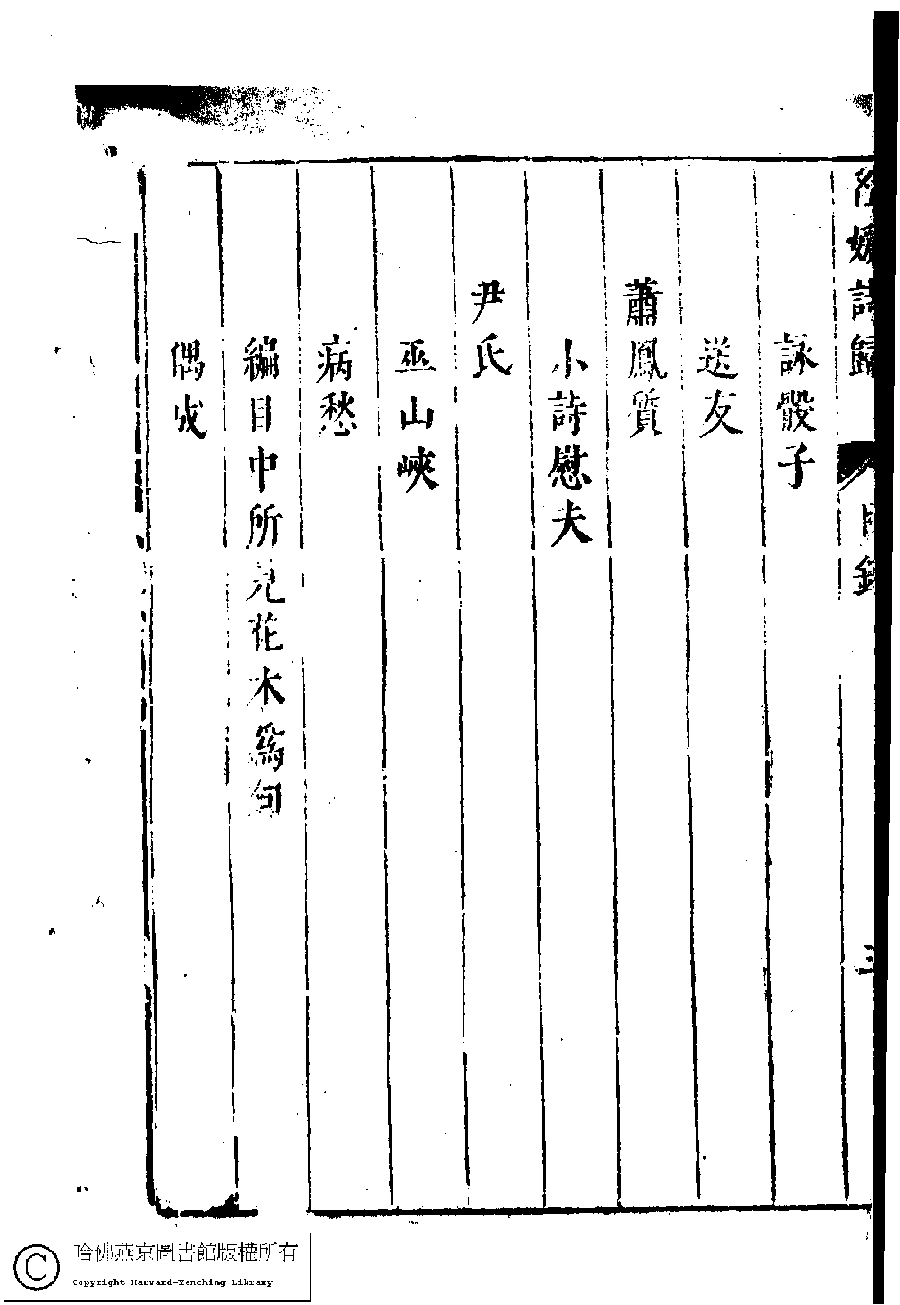 名媛詩歸 目錄 三
詠骰子
送友
蕭鳳質
小詩慰夫
尹氏
巫山峽
病愁
編目中所見花木為句
偶成
哈佛燕京圖書館版權所有
Copyright Harvard-Yenching Library